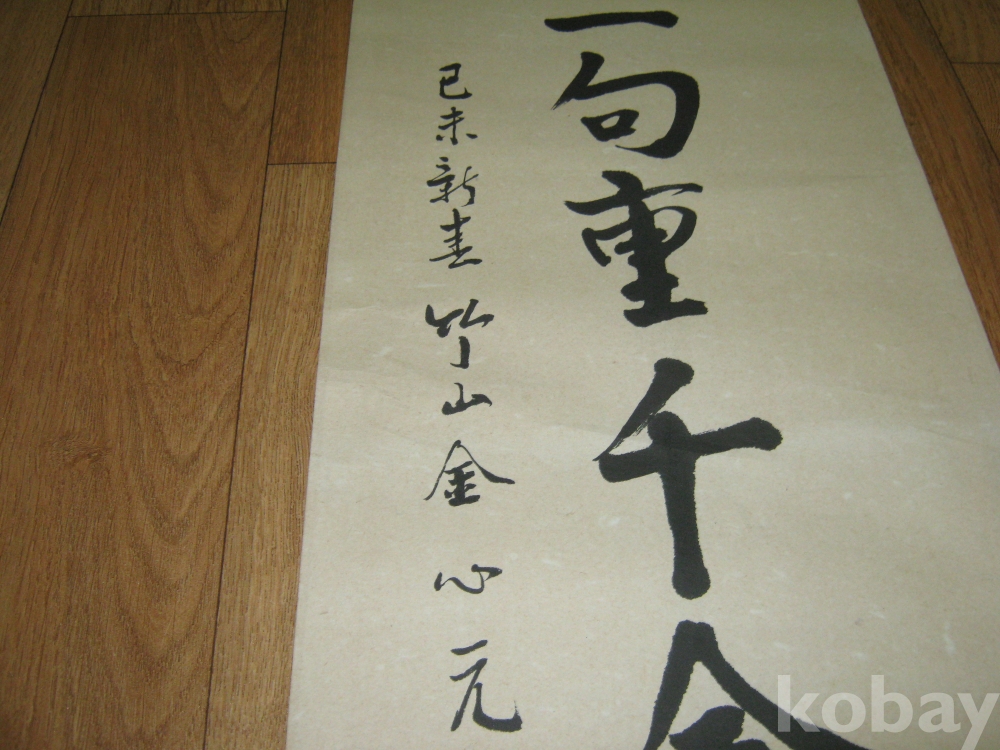 一句重千金
己未新春 竹山 金心元
kobay